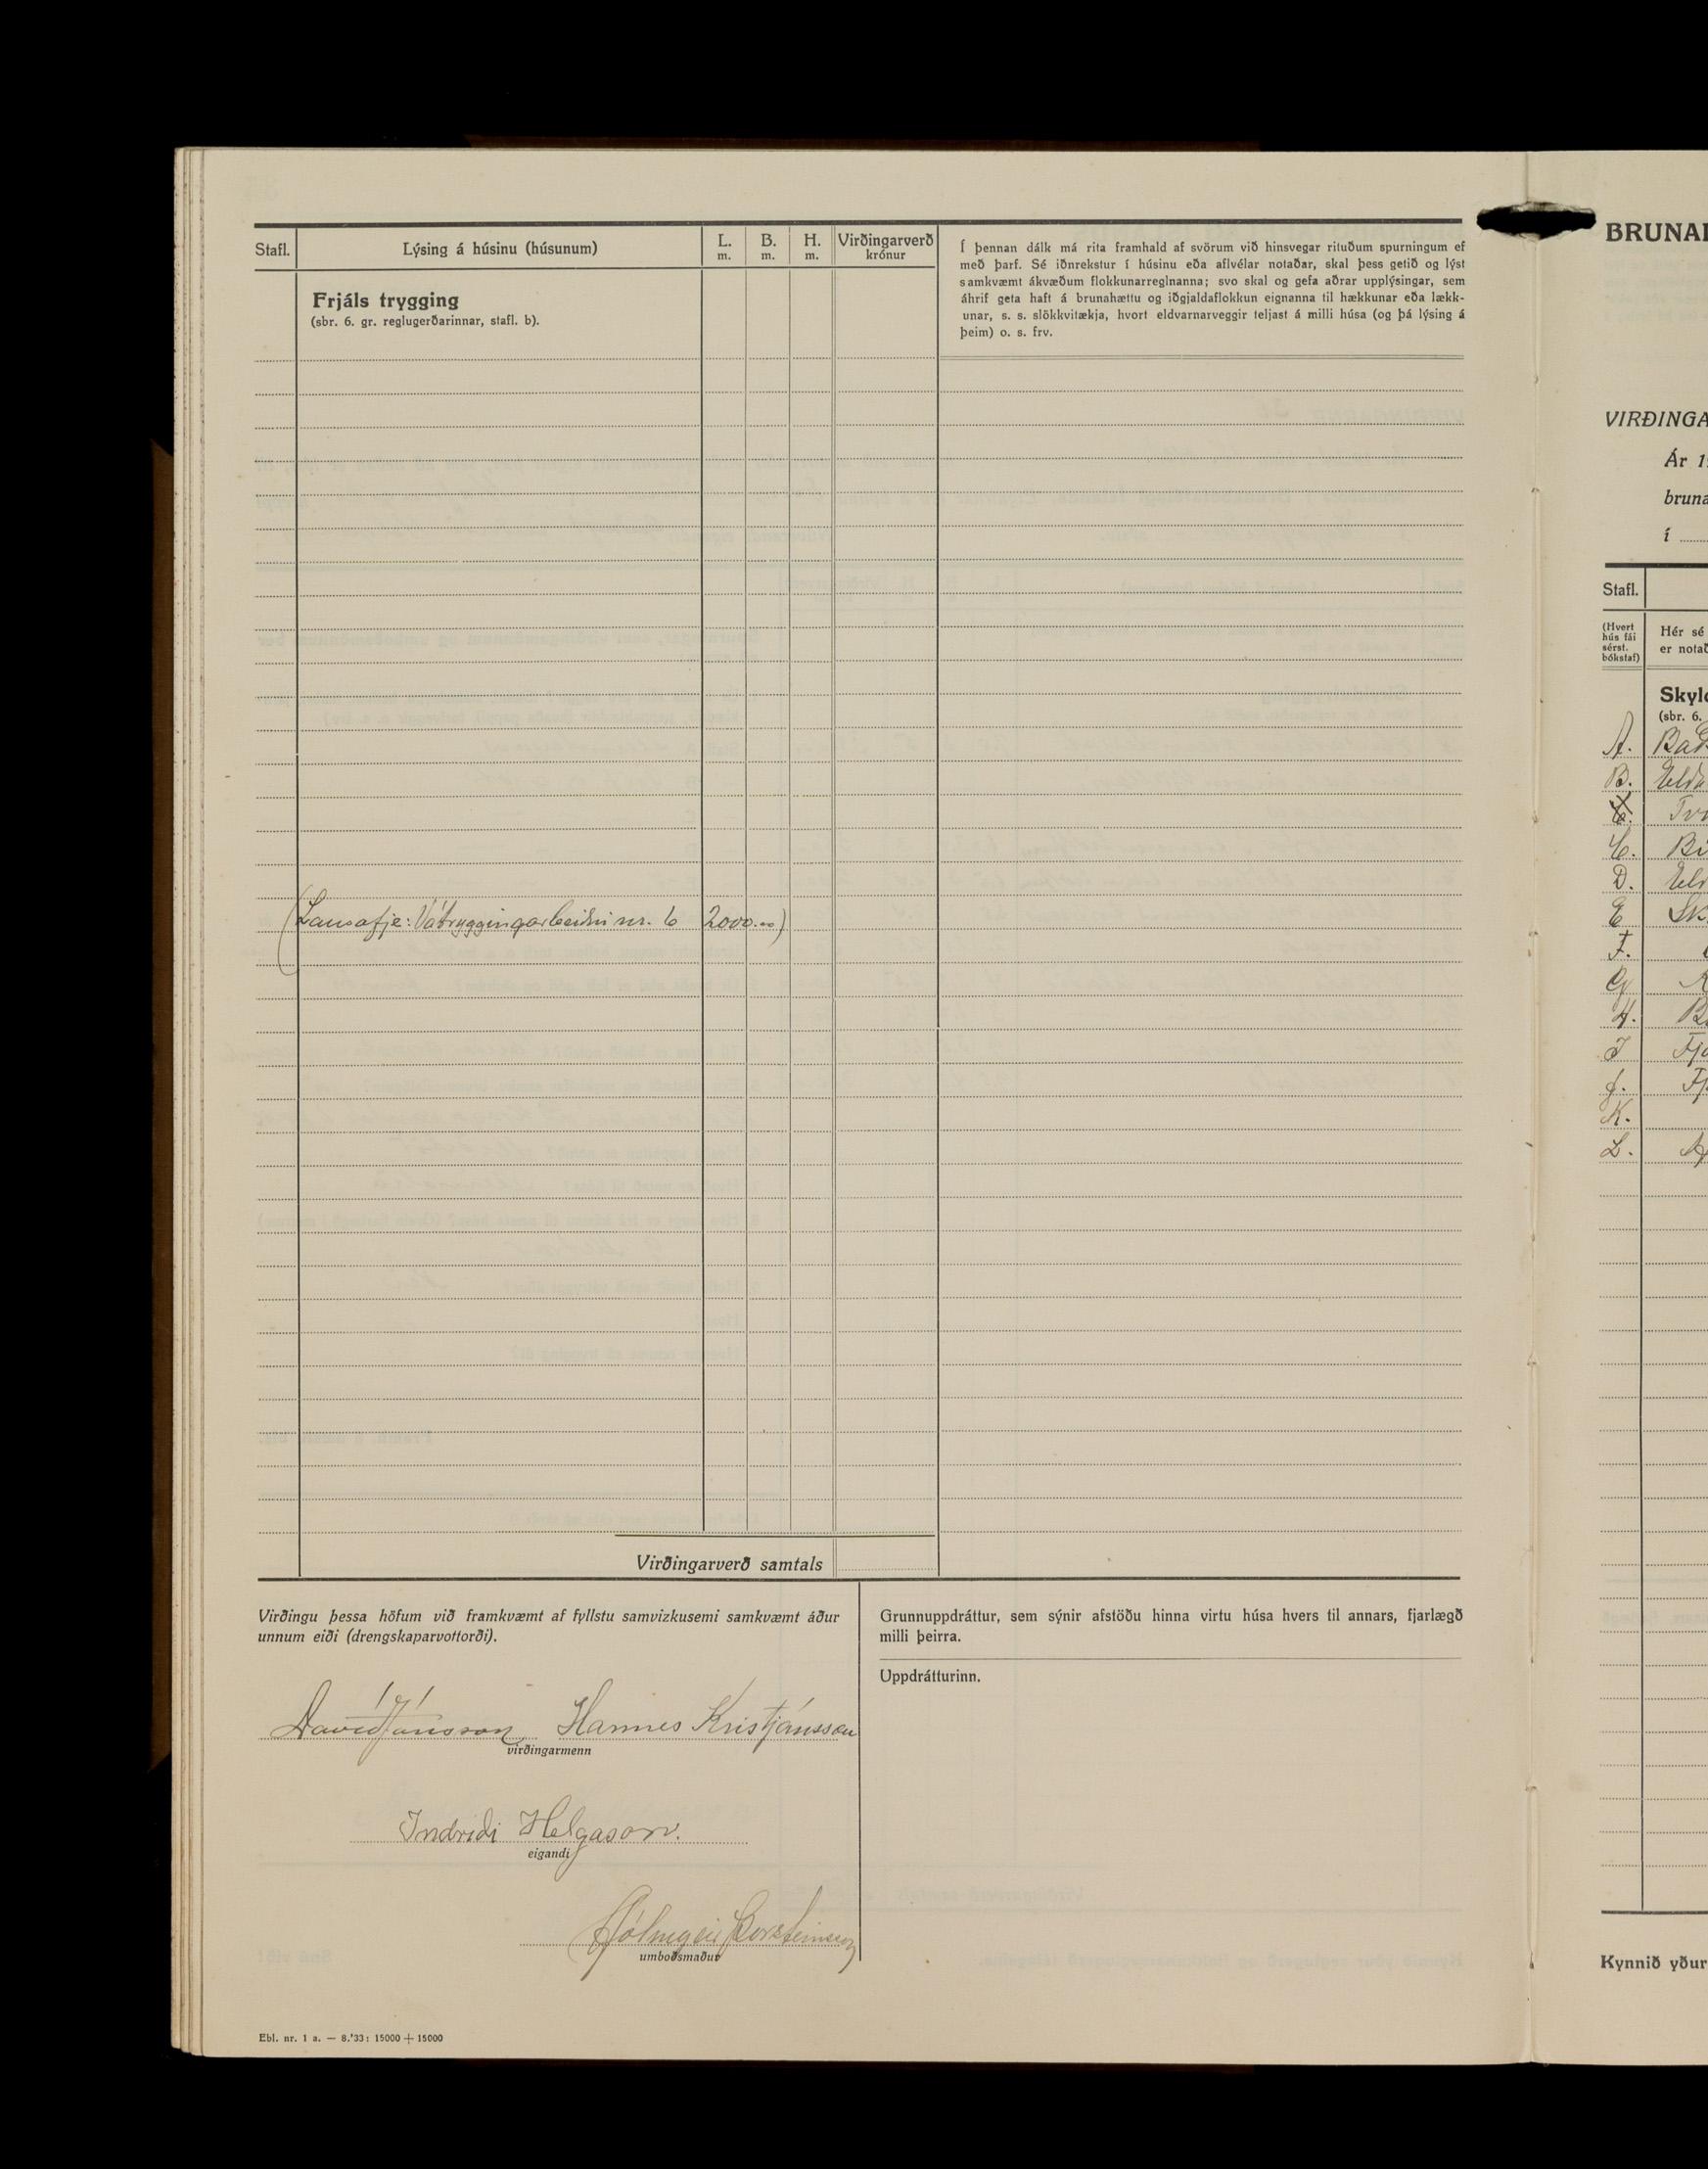 Stafl. Lýsing á húsinu (húsunum) L. m. B. m. H. m. Virðingarverð krónur
Frjáls trygging
(sbr. 6. gr. reglugerðarinnar, stafl. b).
Í þennan dálk má rita framhald af svörum við hinsvegar rituðum spurningum ef
með þarf. Sé iðnrekstur í húsinu eða aflvélar notaðar, skal þess getið og lýst
samkvæmt ákvæðum flokkunarreglnanna; svo skal og gefa aðrar upplýsingar, sem
áhrif geta haft á brunahættu og iðgjaldaflokkun eignanna til hækkunar eða lækk-
unar, s. s. slökkvitækja, hvort eldvarnarveggir teljast á milli húsa (og þá lýsing á
þeim) o. s. frv.
(Lausafje: Vátryggingarbeiðni nr. 6 2000.00)
Virðingarverð samtals
Virðingu þessa höfum við framkvæmt af fyllstu samvizkusemi samkvæmt áður
unnum eiði (drengskaparvottorði).
Davíð Jónsson Hannes Kristjánsson
virðingarmenn
Indriði Helgason.
eigandi
Hólmgeir Þorsteinsson
umboðsmaður
Grunnuppdráttur, sem sýnir afstöðu hinna virtu húsa hvers til annars, fjarlægð
milli þeirra.
Uppdrátturinn.
Ebl. nr. 1 a. — 8.'33: 15000 + 15000
BRUNA
VIRÐINGA
Ár 1
bruna
í
Stafl.
(Hvert
hús fái
sérst.
bókstaf)
Hér sé
er notað
Skyld
(sbr. 6.
A. Bað
B. Elda
C. Tv
C. Bú
D. Eld
E Sk
F.
G
H. B
I Fjó
J. Fj
K.
L.
Kynnið yður